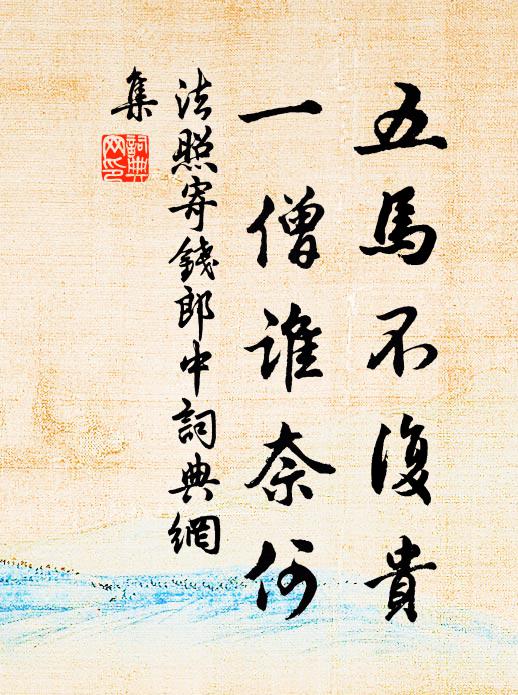 五馬不復貴
一僧誰奈何
法照寄錢郎中詞典網
集
詞典
网印